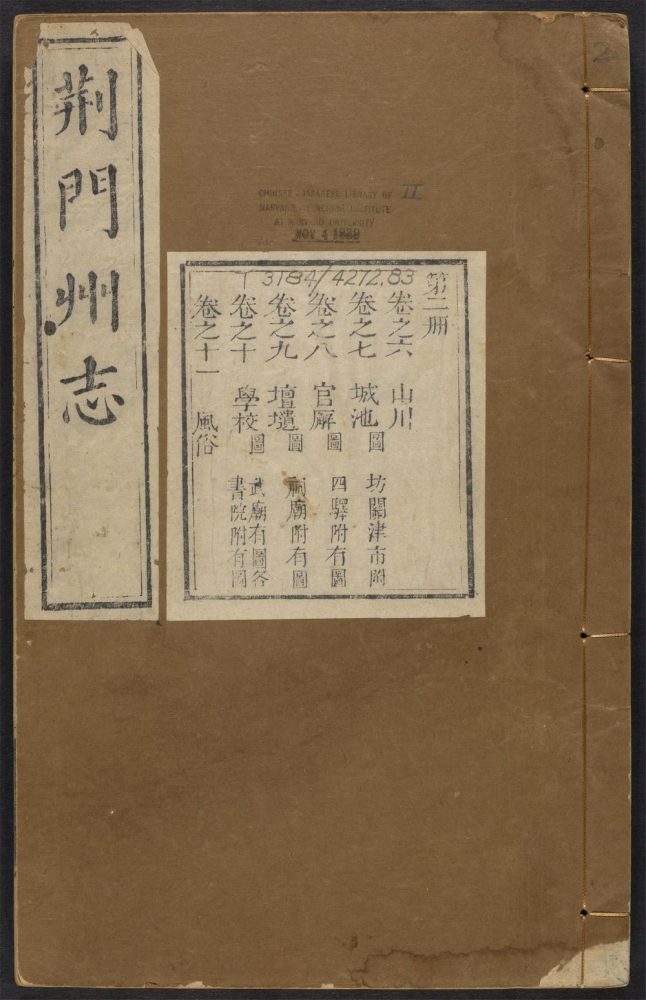 荆門州志
2
CHINESE-JAPANESE LIBRARY OF II
HARVARD-YENCHING INSTITUTE
AT HARVARD UNIVERSITY
NOV 4 1939
T 3184/4272.83
第二册
卷之六 山川
卷之七 城池圖 坊關津市附
卷之八 官廨圖 四驛附有圖
卷之九 壇壝圖 祠廟附有圖
卷之十 學校圖 武廟有圖各書院附有圖
卷之十一 風俗